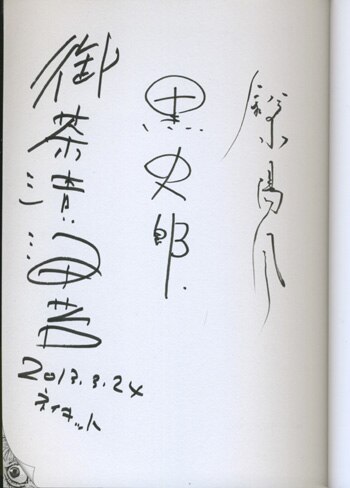 陽介
黒史郎
御茶漬海苔
2013.3.24
ネイキット